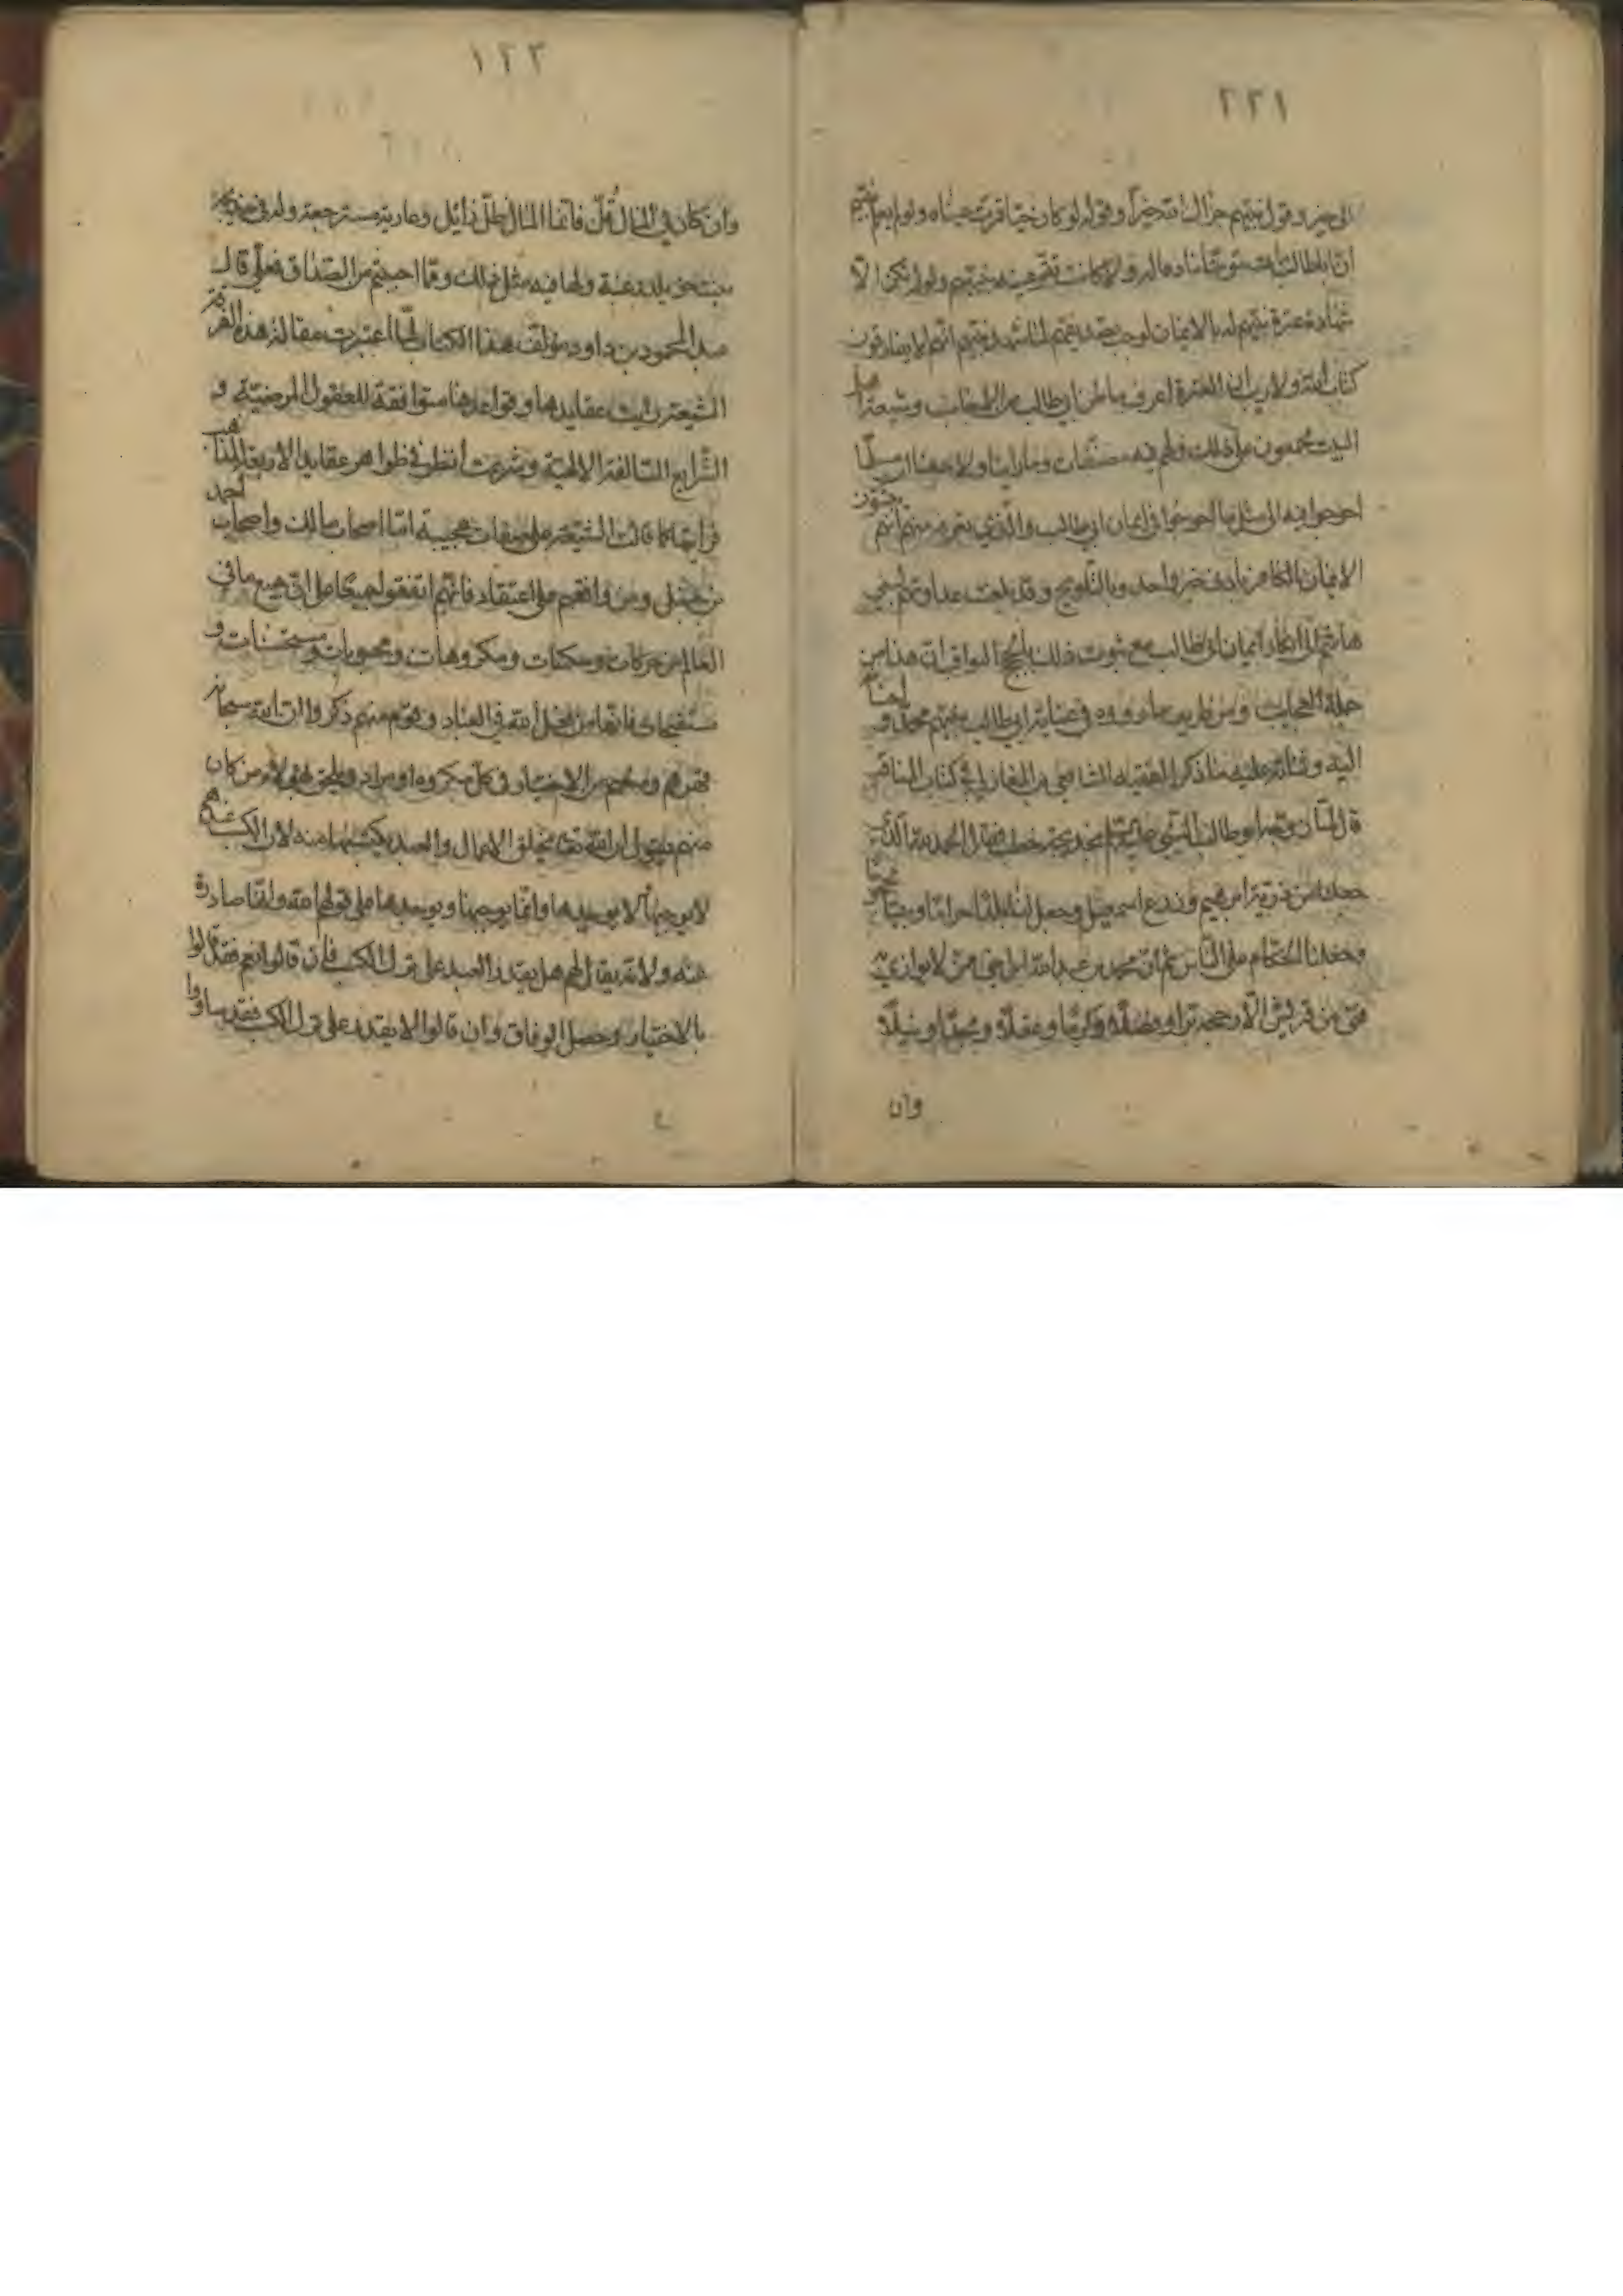 ٢٢١
الى خير وقول نبيهم جزاك الله خيرا وقوله لو كان حيا قرت عيناه ولو لم يعلم نبيهم
ان اباطالب مات مؤمنا ما دعا له ولا كانت تقر عينه بنبيهم ولو لم يكن الا
شهادة عترة نبيهم له بالايمان لوجب تصديقهم لما شهد نبيهم انهم لا يفارقون
كتاب الله ولا ريب ان العترة اعرف بباطن ابي طالب من الاجانب وشيعة اهل
البيت مجمعون على ذلك ولهم فيه مصنفات وما راينا ولا سمعنا ان مسلما
احوجوا فيه الى مثل ما احوجوا في ايمان ابي طالب والذي نعرفه منهم انهم يثبتون
الايمان للكافر بادنى خبر واحد وبالتلويح وقد بلغت عداوتهم لبني
هاشم الى انكار ايمان ابي طالب مع ثبوت ذلك بالحجج الثواقب ان هذا من
جملة العجايب ومن طريف ما رووه في عناية ابي طالب بنبيهم محمد و
اليه وثنائه عليه ما ذكره الفقيه الشافعي بن المغازلي في كتاب المناقب
قال لما تزوج ابو طالب النبي بخديجة خطب فقال الحمد لله الذي
جعلنا من ذرية ابرهيم وزرع اسمعيل وجعل لنا بلدا حراما وبيتا محجوجا
وجعلنا الحكام على الناس ثم ان محمد بن عبد الله ابن اخي من لا يوازى به
فتى من قريش الا رجح به برا وفضلا وكرما وعقلا ومجدا ونبلا
وان
١٢٣
وان كان في المال قل فانما المال ظل زائل وعارية مسترجعة وله في خديجة
بنت خويلد رغبة ولها فيه مثل ذلك وما احببتم من الصداق فعلي قال
عبد المحمود بن داود مؤلف هذا الكتاب لما اعتبرت مقالة هذه الفرقة
الشيعة رايت عقايدها وقواعدها متوافقة للعقول المرضية و
الشرايع السالفة الالهية وشرعت انظر في ظواهر عقايد الاربعة المذاهب
فرايتها كما قالت الشيعة على صفات عجيبة اما اصحاب مالك واصحاب احمد
بن حنبل ومن وافقهم على اعتقاد فانهم اتفقوا جميعا على ان جميع ما في
العالم من حركات وسكنات ومكروهات ومحبوبات ومستحسنات و
مستقبحات فانها من فعل الله في العباد وقوم منهم ذكروا ان الله سبحانه
قهرهم ومنعهم من الاختيار في كل مكروه او مراد ويلحق بهؤلاء من كان
منهم يقول ان الله تعالى يخلق الافعال والعبد يكتسبها منه لان الكسب عندهم
لا يوجبها لا يوجدها وانما يوجبها ويوجدها على قولهم الله وانها صادرة
عنه ولانه يقال لهم هل يقدر العبد على ترك الكسب فان قالوا نعم فقد قالوا
بالاختيار وحصل الوفاق وان قالوا لا يقدر على ترك الكسب فقد ساووا